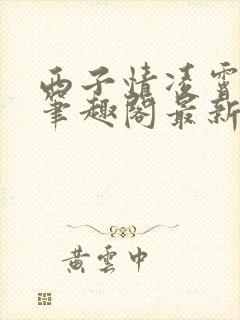 西子情凌霄
笔趣阁最新
黄云中